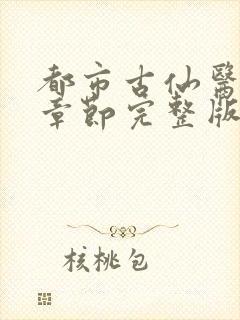 都市古仙醫
章節完整版
核桃包